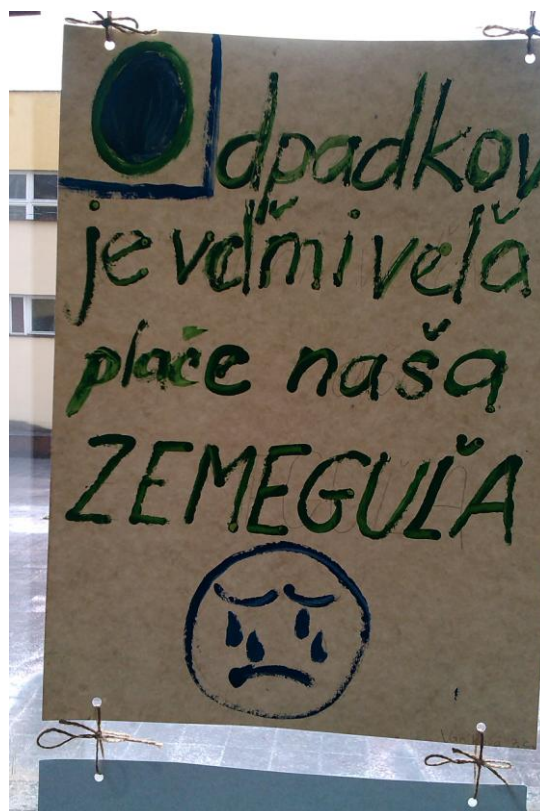 Odpadkov
je veľmi veľa
plače naša
ZEMEGUĽA